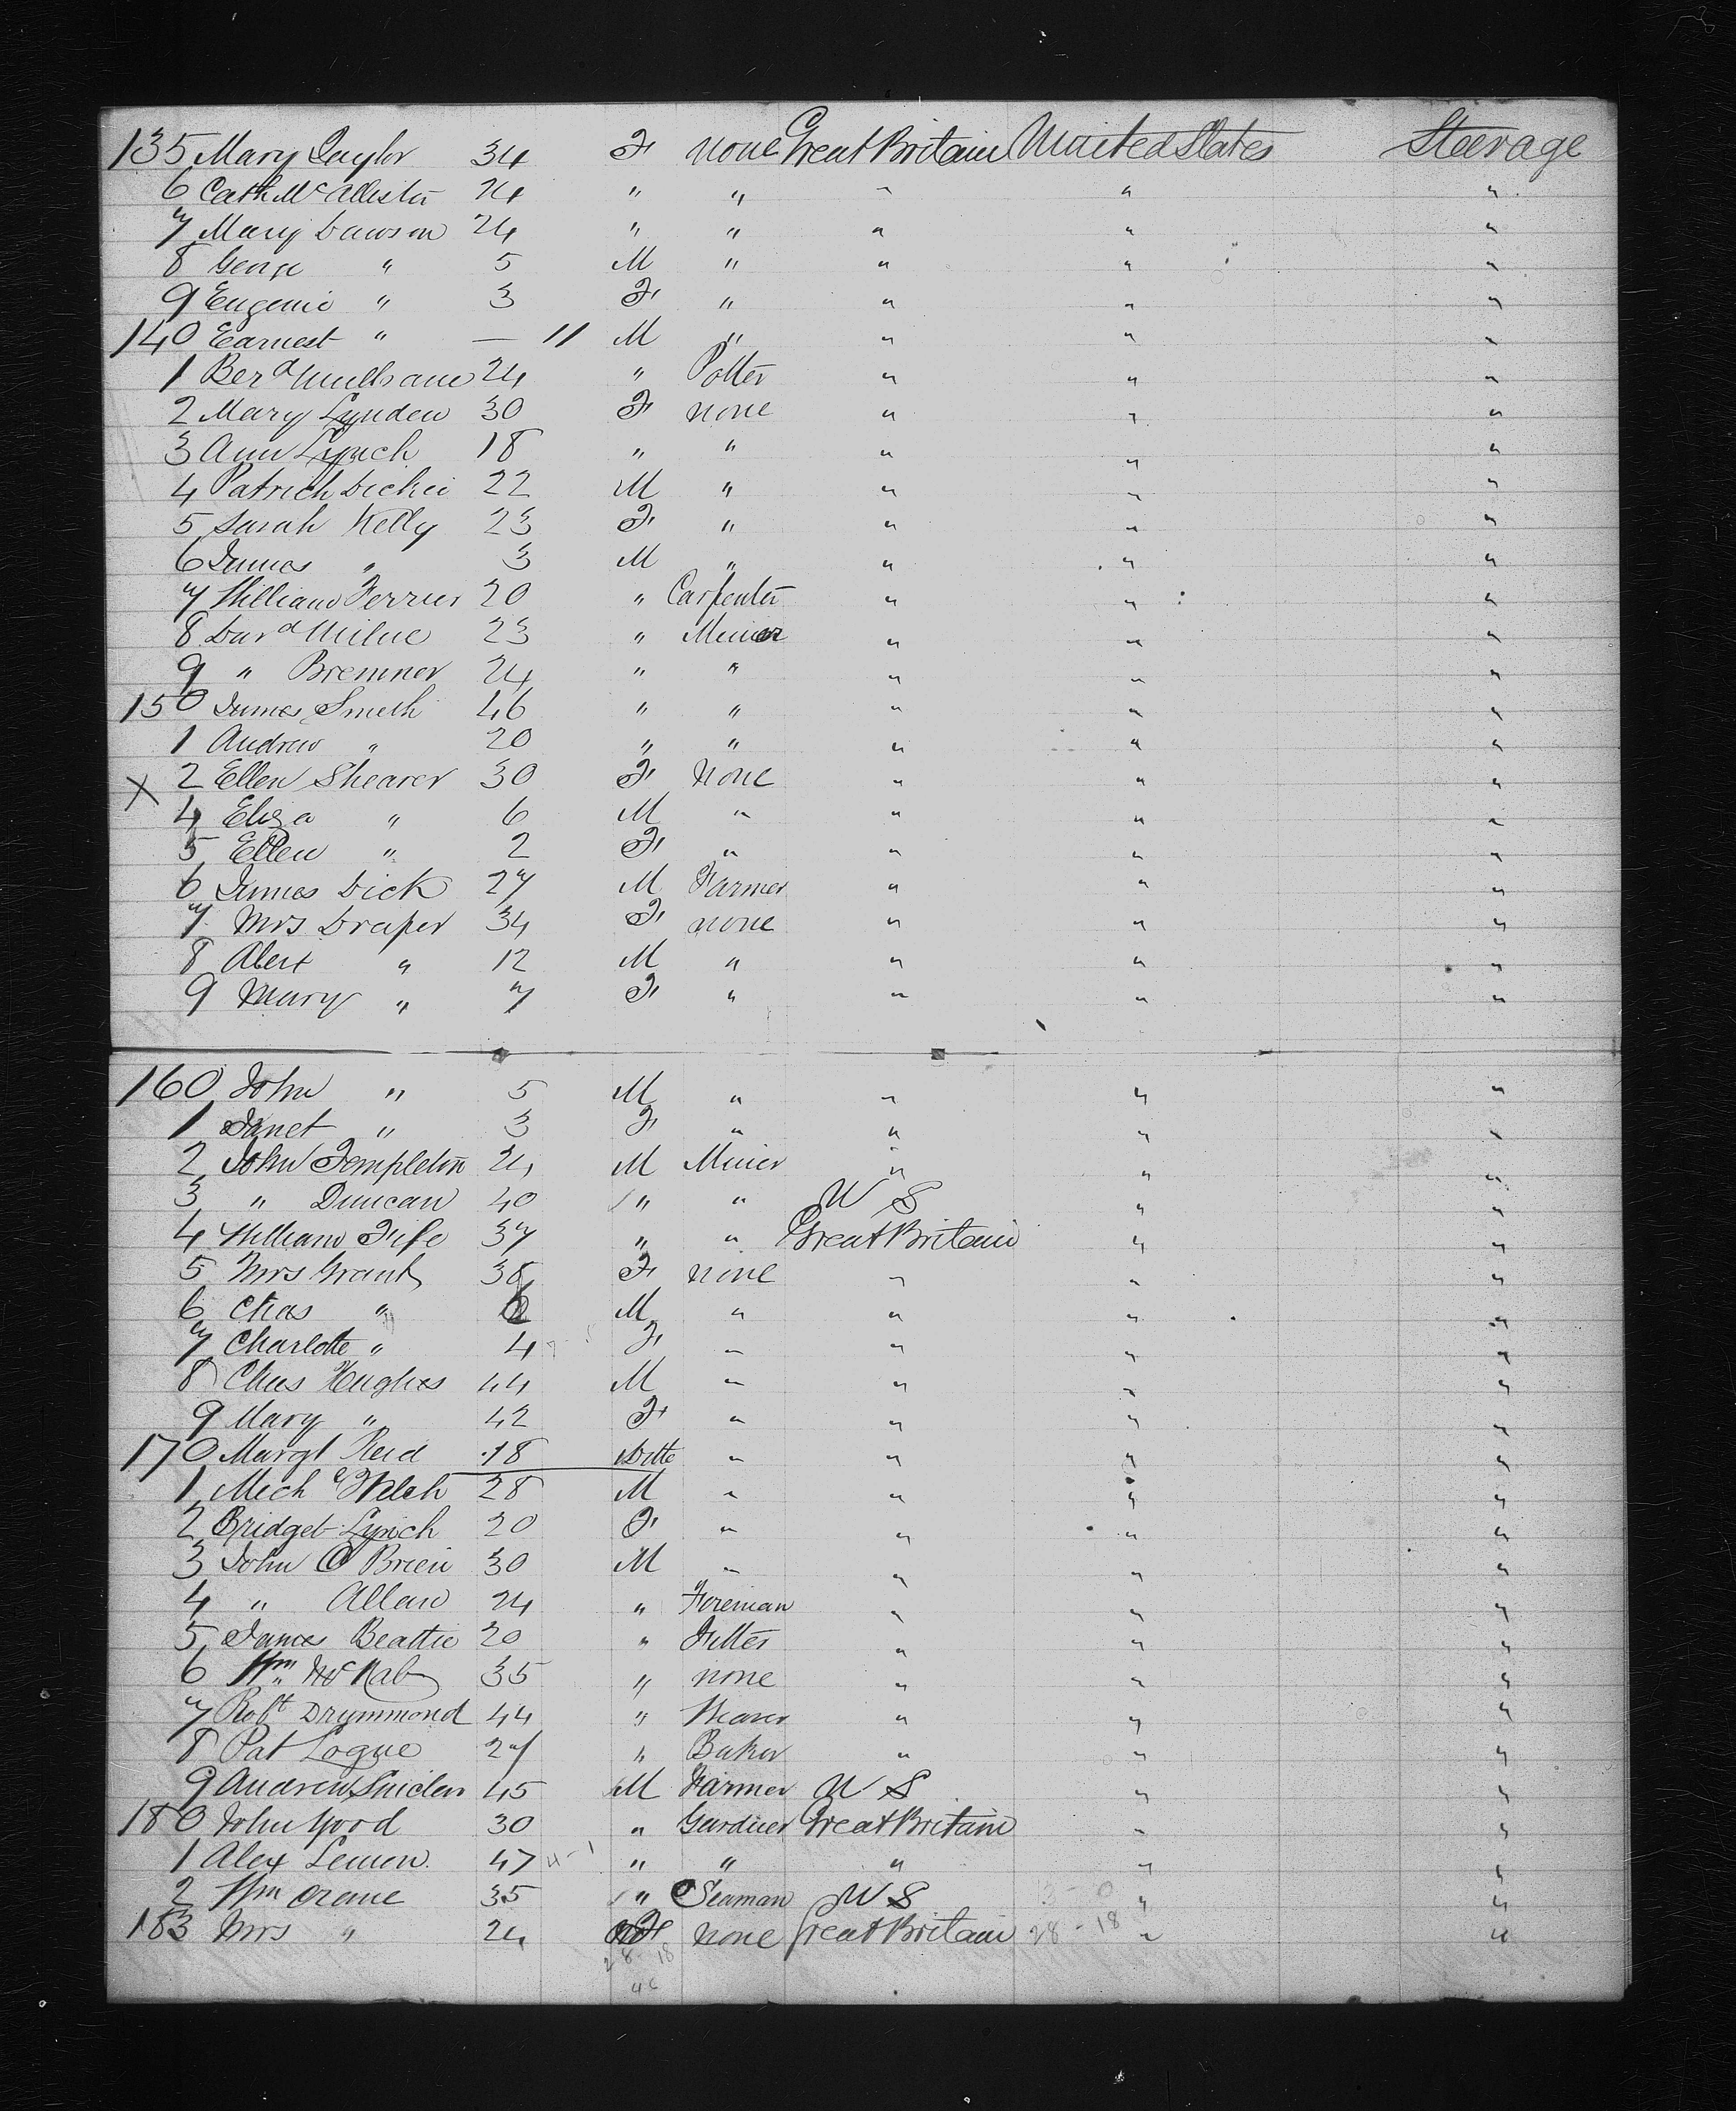 135 Mary Taylor 34 F none Great Britain United States Steerage
6 Cath McAllister 24 " " " " "
7 Mary Dawson 24 " " " " "
8 George " 5 M " " " "
9 Eugenie " 3 F " " " "
140 Earnest " — 11 M " " " "
1 Berd 24 " Potter " " "
2 Mary Lynden 30 F none " " "
3 Ann Lynch 18 " " " " "
4 Patrick Dickie 22 M " " " "
5 Sarah Kelly 23 F " " " "
6 James " 3 M " " " "
7 William Ferrier 20 " Carpenter " " "
8 Davd Milne 23 " Miner " " "
9 " Bremner 24 " " " " "
150 James Smith 46 " " " " "
1 Andrew " 20 " " " " "
X 2 Ellen Shearer 30 F none " " "
4 Eliza " 6 M " " " "
5 Ellen " 2 F " " " "
6 James Dick 27 M Farmer " " "
7 Mrs Draper 34 F none " " "
8 Alext " 12 M " " " "
9 Mary " 7 F " " " "
160 John " 5 M " " " "
1 Janet " 3 F " " " "
2 John Templeton 24 M Miner " " "
3 " Duncan 40 " " U S " "
4 William Fife 37 " " Great Britain " "
5 Mrs Grant 38 F none " " "
6 Chas " 6 M " " " "
7 Charlotte " 4 F " " " "
8 Chas Hughes 44 M " " " "
9 Mary " 42 F " " " "
170 Margt Reid 18 Ditto " " " "
1 Mich Welsh 28 M " " " "
2 Bridget Lynch 20 F " " " "
3 John O Brien 30 M " " " "
4 " Allan 24 " Foreman " " "
5 James Beattie 20 " Fitter " " "
6 Wm McNab 35 " none " " "
7 Robt Drymmond 44 " Weaver " " "
8 Pat Logue 27 " Baker " " "
9 Andrew 45 M Farmer U S " "
180 John 30 " Gardner Great Britain " "
1 Alex Lemon 47 " " " " "
2 Wm Crane 35 " Seaman U S " "
183 Mrs " 24 F none Great Britain 28-18 " "
28 18
46